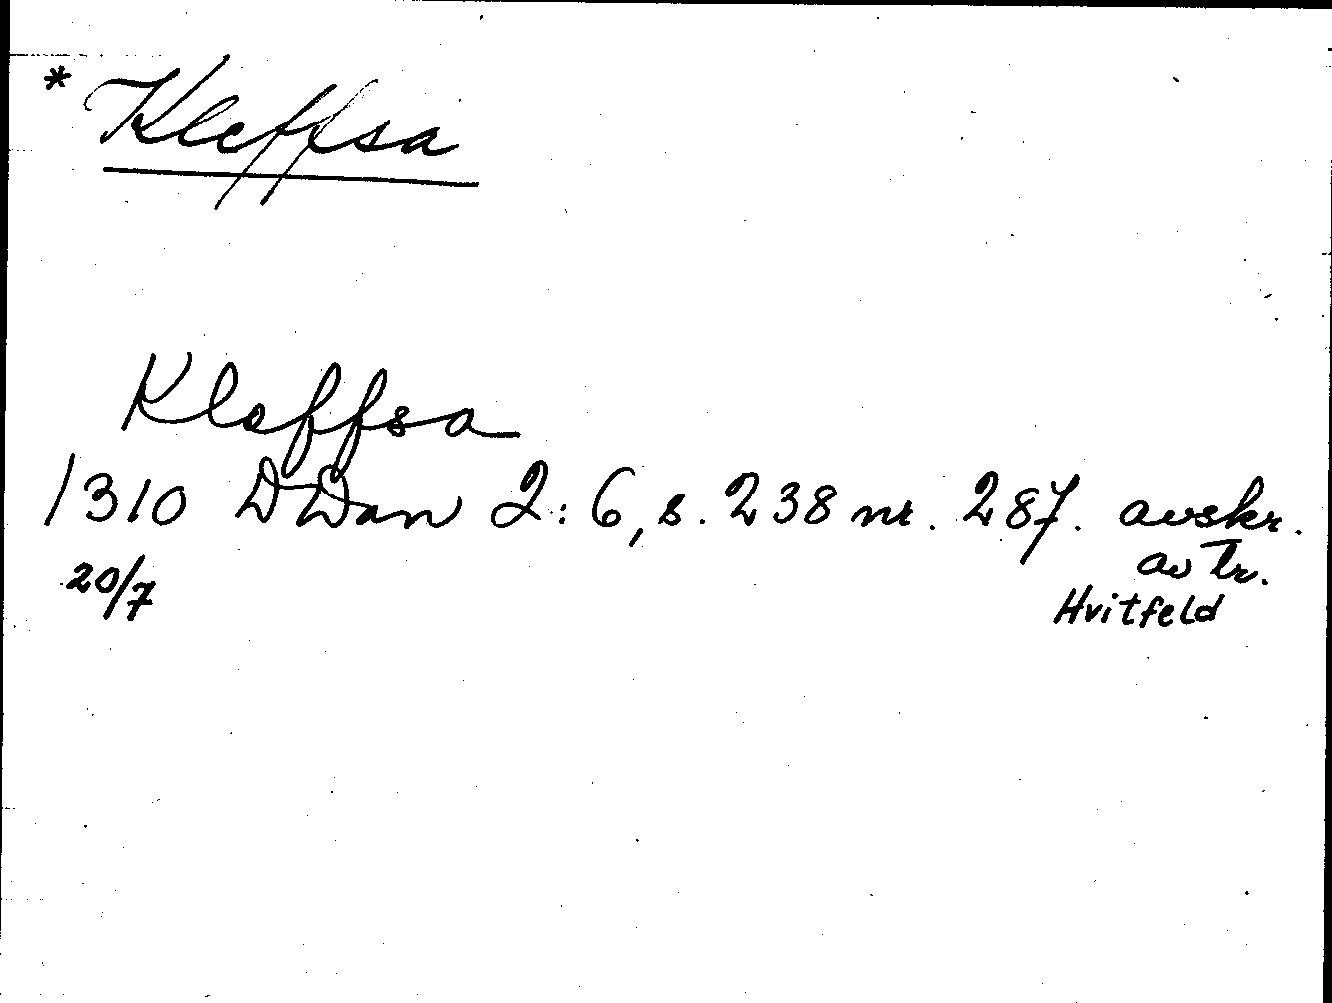 * Kleffsa
Kleffsa
1310 DDan 2:6, s. 238 nr. 287. avskr.
av Tr.
20/7
Hvitfeld